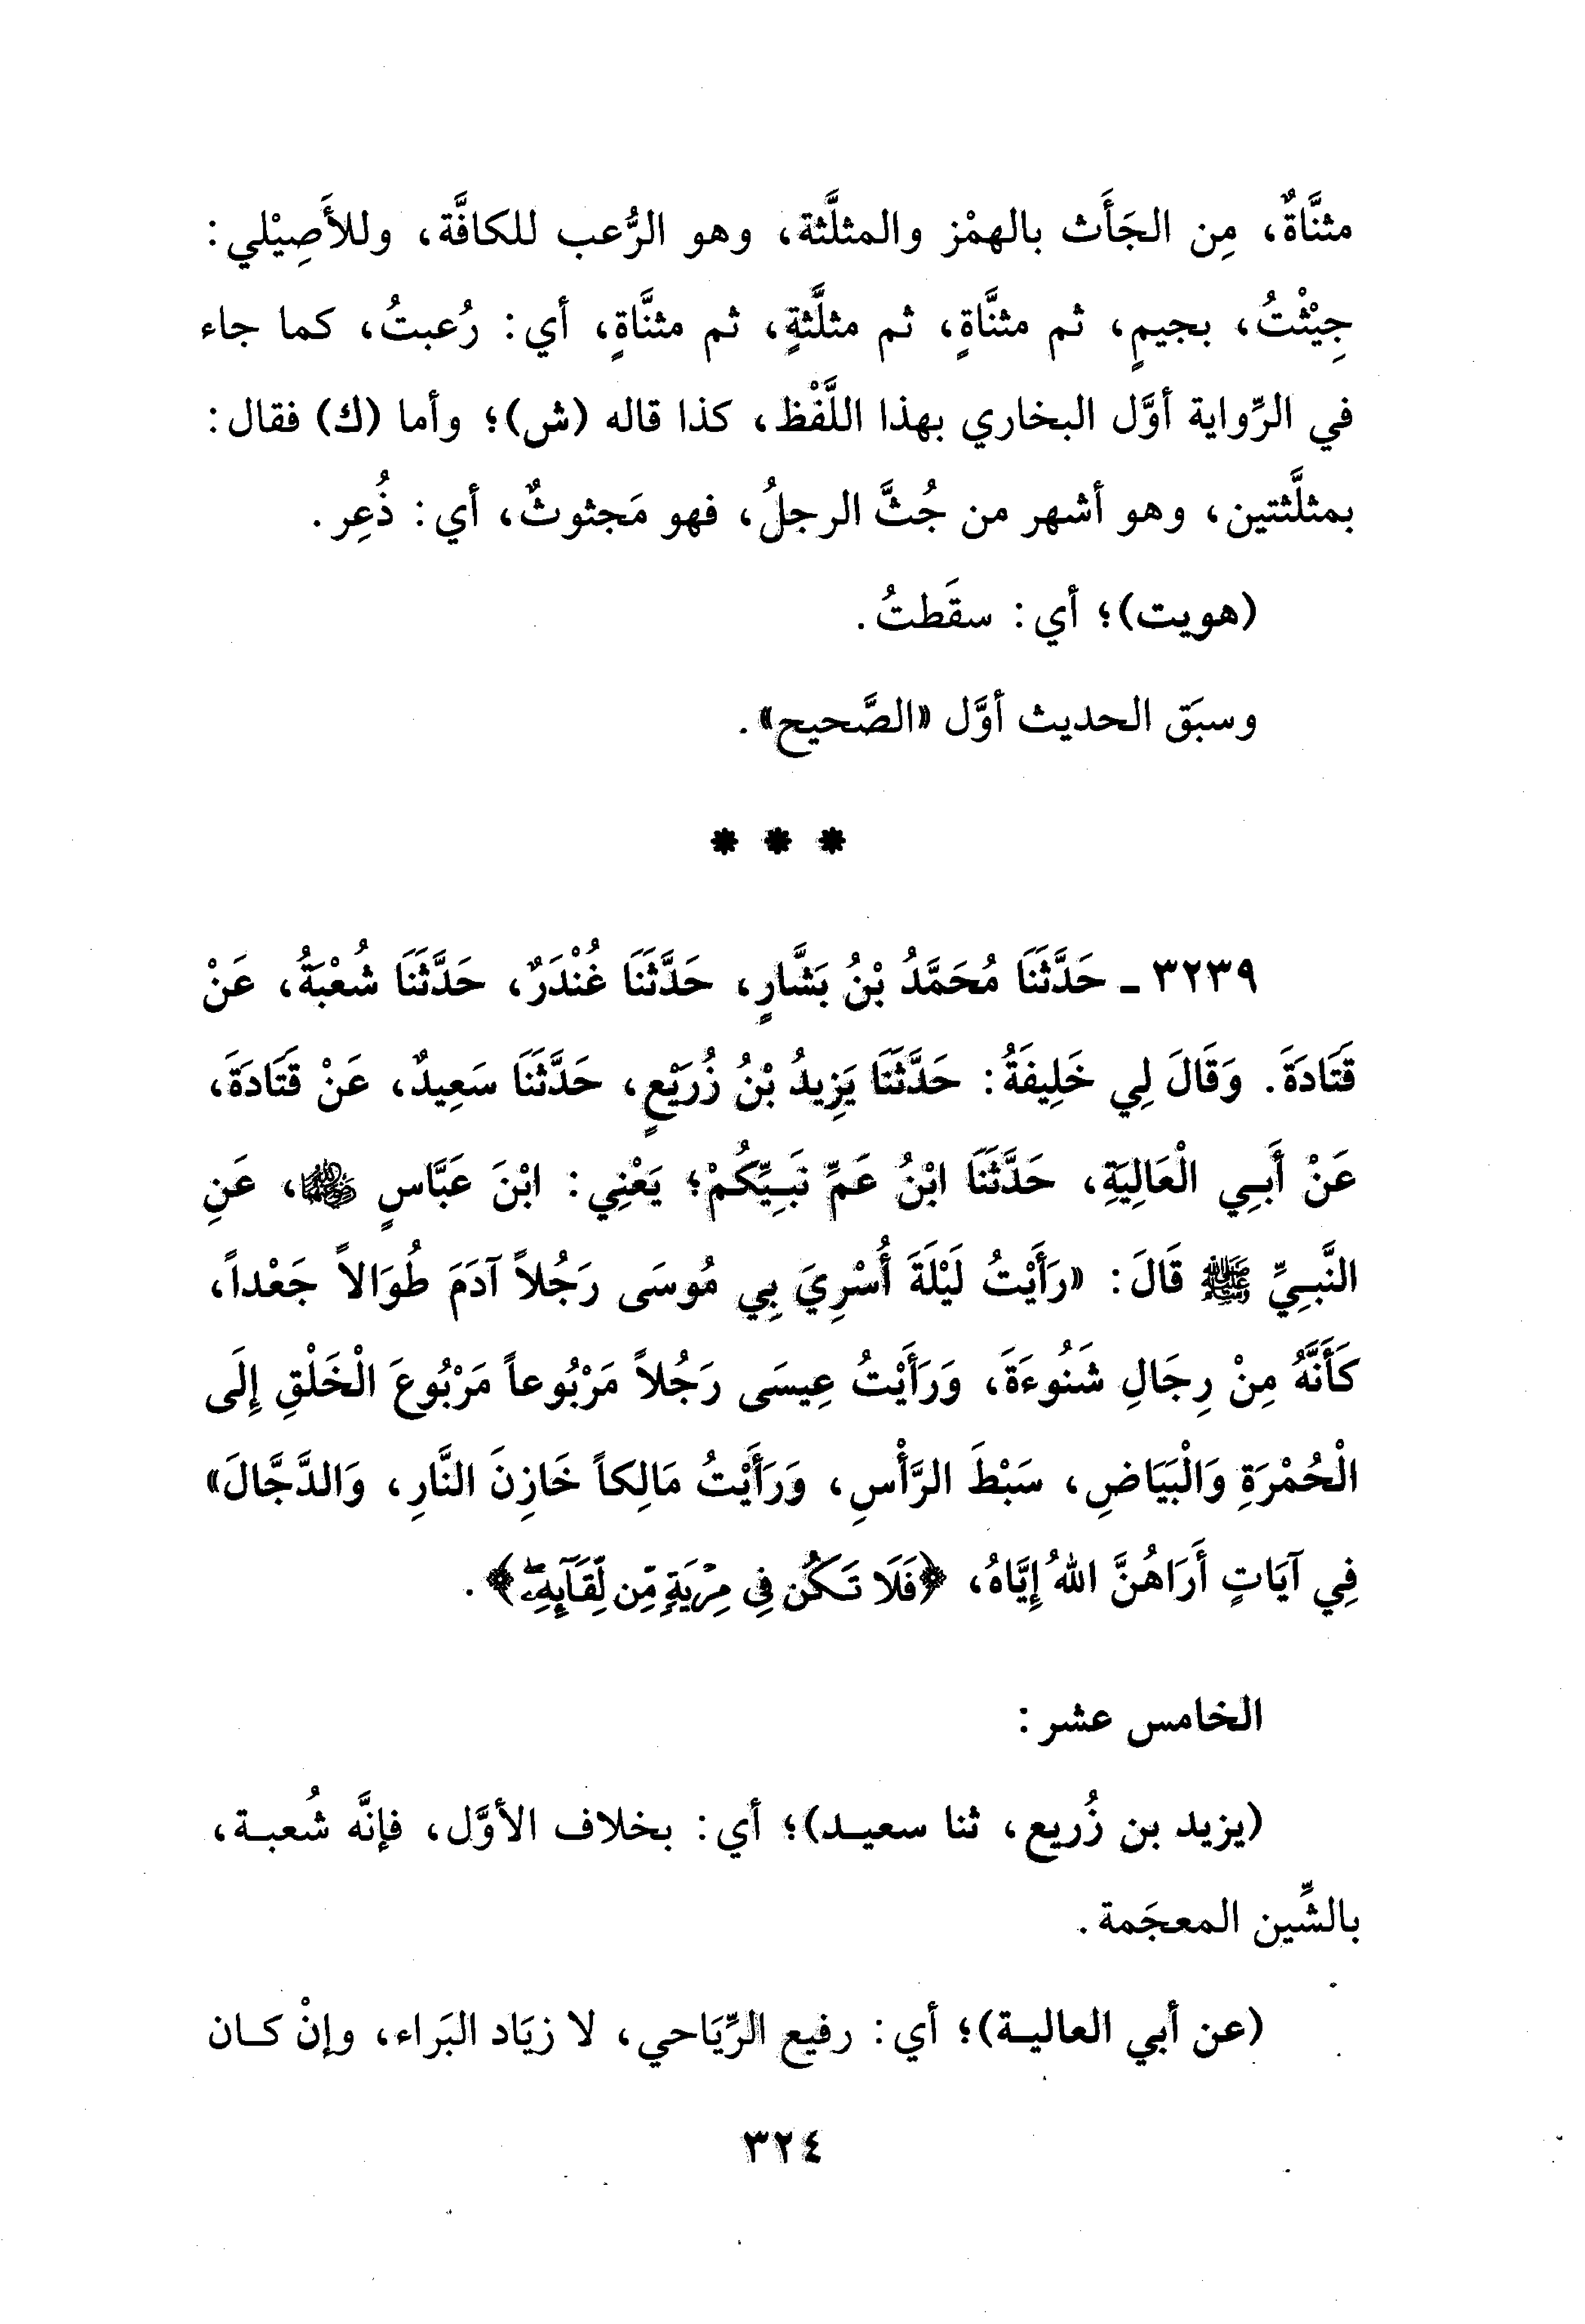 مثنَّاةٌ، مِن الجَأَث بالهمْز والمثلَّثة، وهو الرُّعب للكافَّة، وللأَصِيْلي:
جِيْثْتُ، بجيمٍ، ثم مثنَّاةٍ، ثم مثلَّثةٍ، ثم مثنَّاةٍ، أي: رُعبتُ، كما جاء
في الرِّواية أوَّل البخاري بهذا اللَّفْظ، كذا قاله (ش)؛ وأما (ك) فقال:
بمثلَّثتين، وهو أشهر من جُثَّ الرجلُ، فهو مَجثوثٌ، أي: ذُعِر.
(هويت)؛ أي: سقَطتُ.
وسبَق الحديث أوَّل «الصَّحيح».
* * *
٣٢٣٩ ـ حَدَّثَنَا مُحَمَّدُ بْنُ بَشَّارٍ، حَدَّثَنَا غُنْدَرٌ، حَدَّثَنَا شُعْبَةُ، عَنْ
قَتَادَةَ. وَقَالَ لِي خَلِيفَةُ: حَدَّثَنَا يَزِيدُ بْنُ زُرَيْعٍ، حَدَّثَنَا سَعِيدٌ، عَنْ قَتَادَةَ،
عَنْ أَبِي الْعَالِيَةِ، حَدَّثَنَا ابْنُ عَمِّ نَبِيِّكُمْ؛ يَعْنِي: ابْنَ عَبَّاسٍ ﵄، عَنِ
النَّبِيِّ ﷺ قَالَ: «رَأَيْتُ لَيْلَةَ أُسْرِيَ بِي مُوسَى رَجُلاً آدَمَ طُوَالاً جَعْداً،
كَأَنَّهُ مِنْ رِجَالِ شَنُوءَةَ، وَرَأَيْتُ عِيسَى رَجُلاً مَرْبُوعاً مَرْبُوعَ الْخَلْقِ إِلَى
الْحُمْرَةِ وَالْبَيَاضِ، سَبْطَ الرَّأْسِ، وَرَأَيْتُ مَالِكاً خَازِنَ النَّارِ، وَالدَّجَّالَ»
فِي آيَاتٍ أَرَاهُنَّ اللهُ إِيَّاهُ، ﴿فَلَا تَكُن فِي مِرْيَةٍ مِّن لِّقَآئِهِۦ﴾.
الخامس عشر:
(يزيد بن زُريع، ثنا سعيد)؛ أي: بخلاف الأوَّل، فإنَّه شُعبة،
بالشِّين المعجَمة.
(عن أبي العالية)؛ أي: رفيع الرِّيَاحي، لا زيَاد البَراء، وإنْ كان
٣٢٤